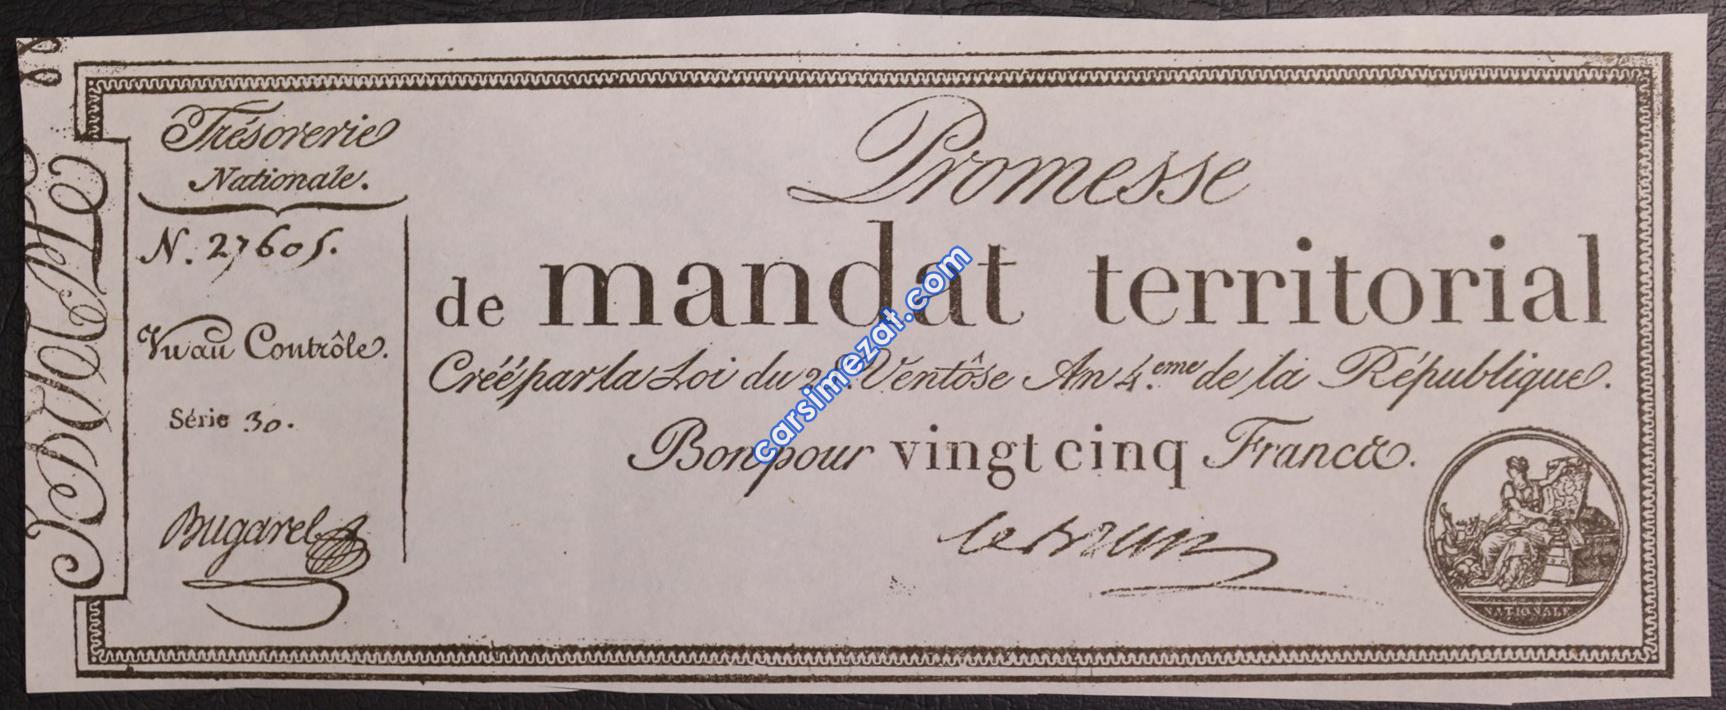 Trésorerie
Nationale.
N. 27605.
Vu au Contrôle.
Série 30.
Bugarel
Promesse
de mandat territorial
Créé par la Loi du Ventôse An 4.eme de la République.
Bon pour vingt cinq Francs.
lebrun
NATIONALE
carsimezat.com